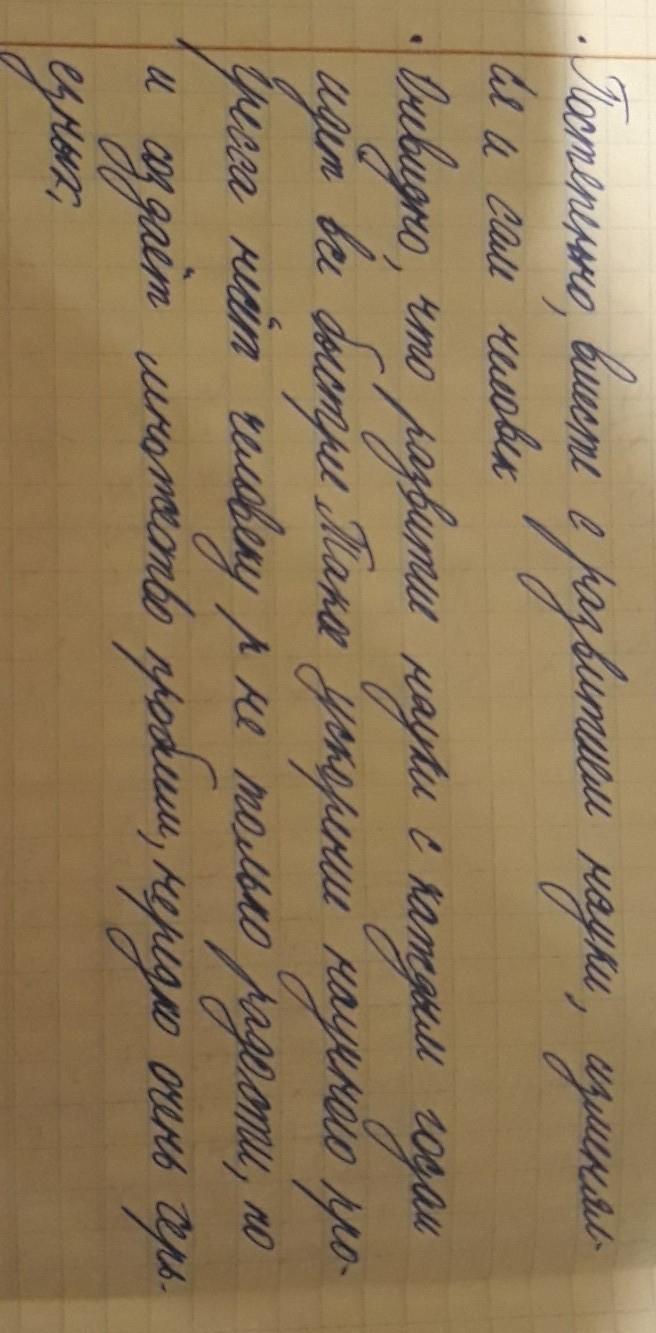 · Постепенно, вместе с развитием науки, изменял-
ся и сам человек
· Очевидно, что развитие науки с каждым годом
идет все быстрее Такое ускорение научного про-
гресса несёт человеку не только радости, но
и создаёт множество проблем, нередко очень серь-
езных;